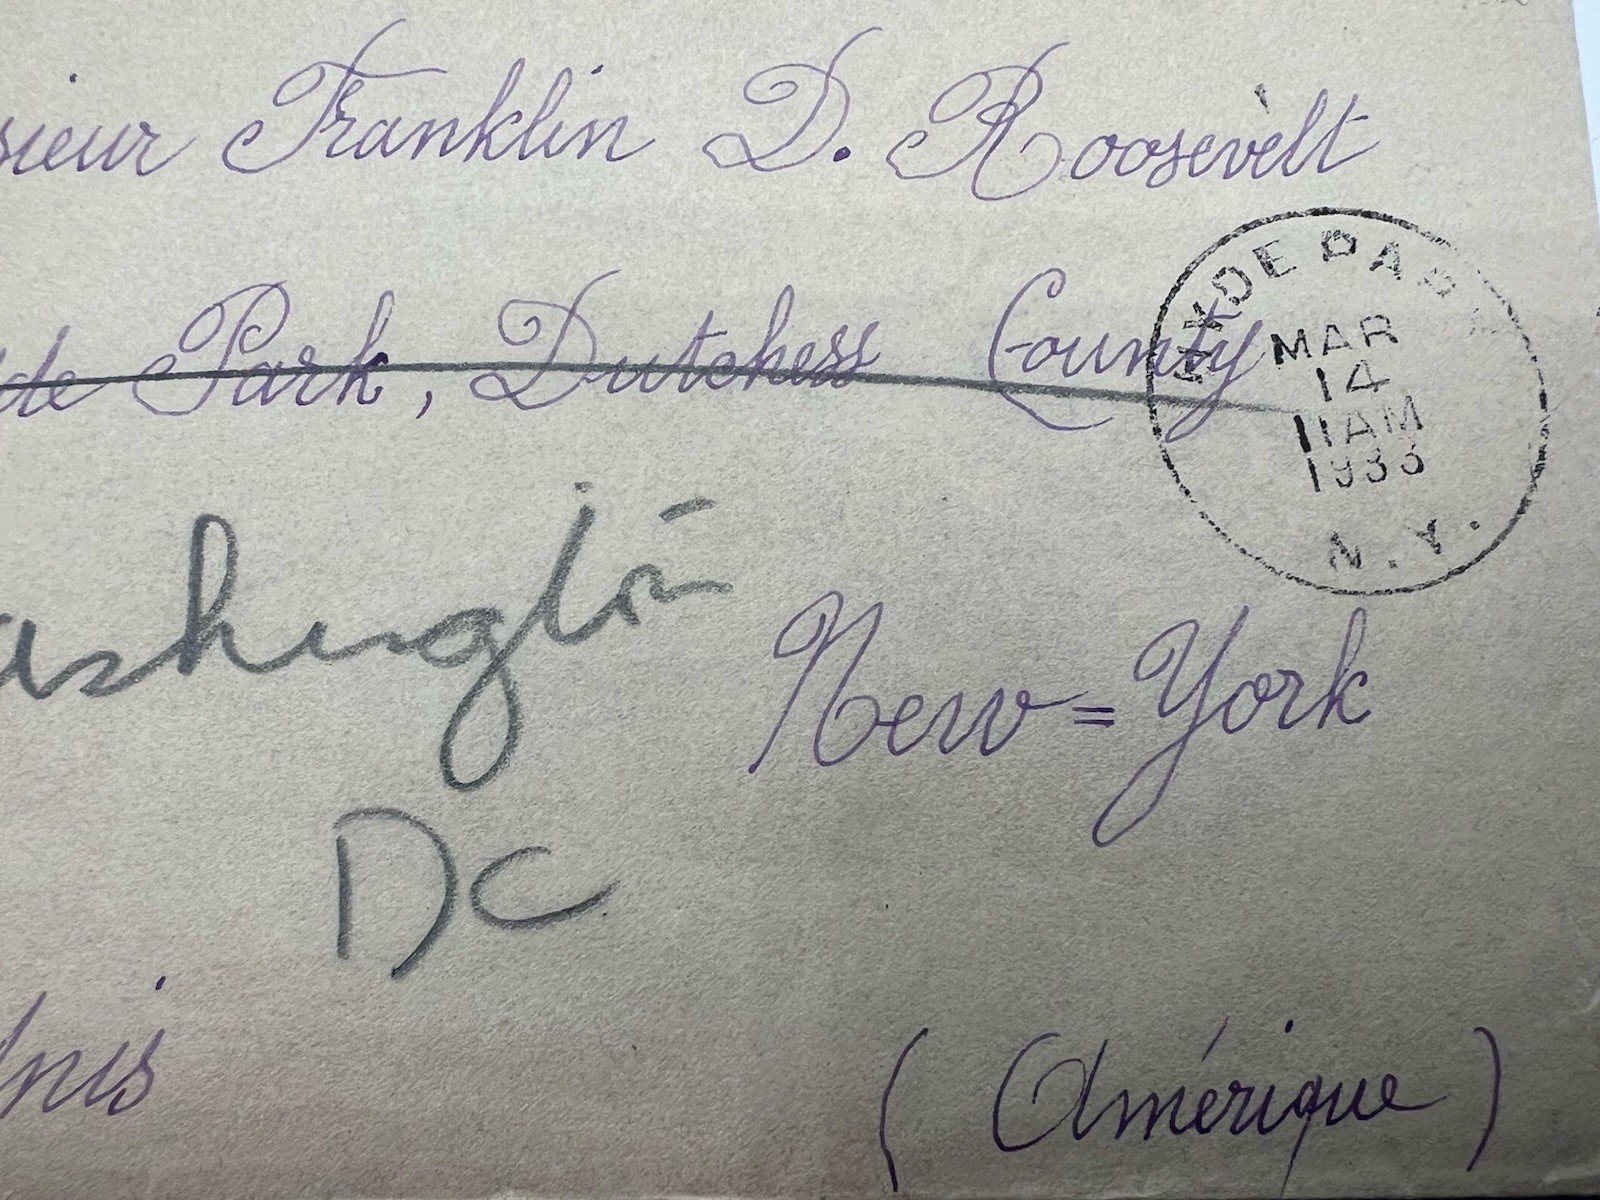 sieur Franklin D. Roosevelt
de Park, Dutchess County
HYDE PARK
MAR
14
11 AM
1933
N.Y.
ashington
DC
New=York
nis
(Amérique)